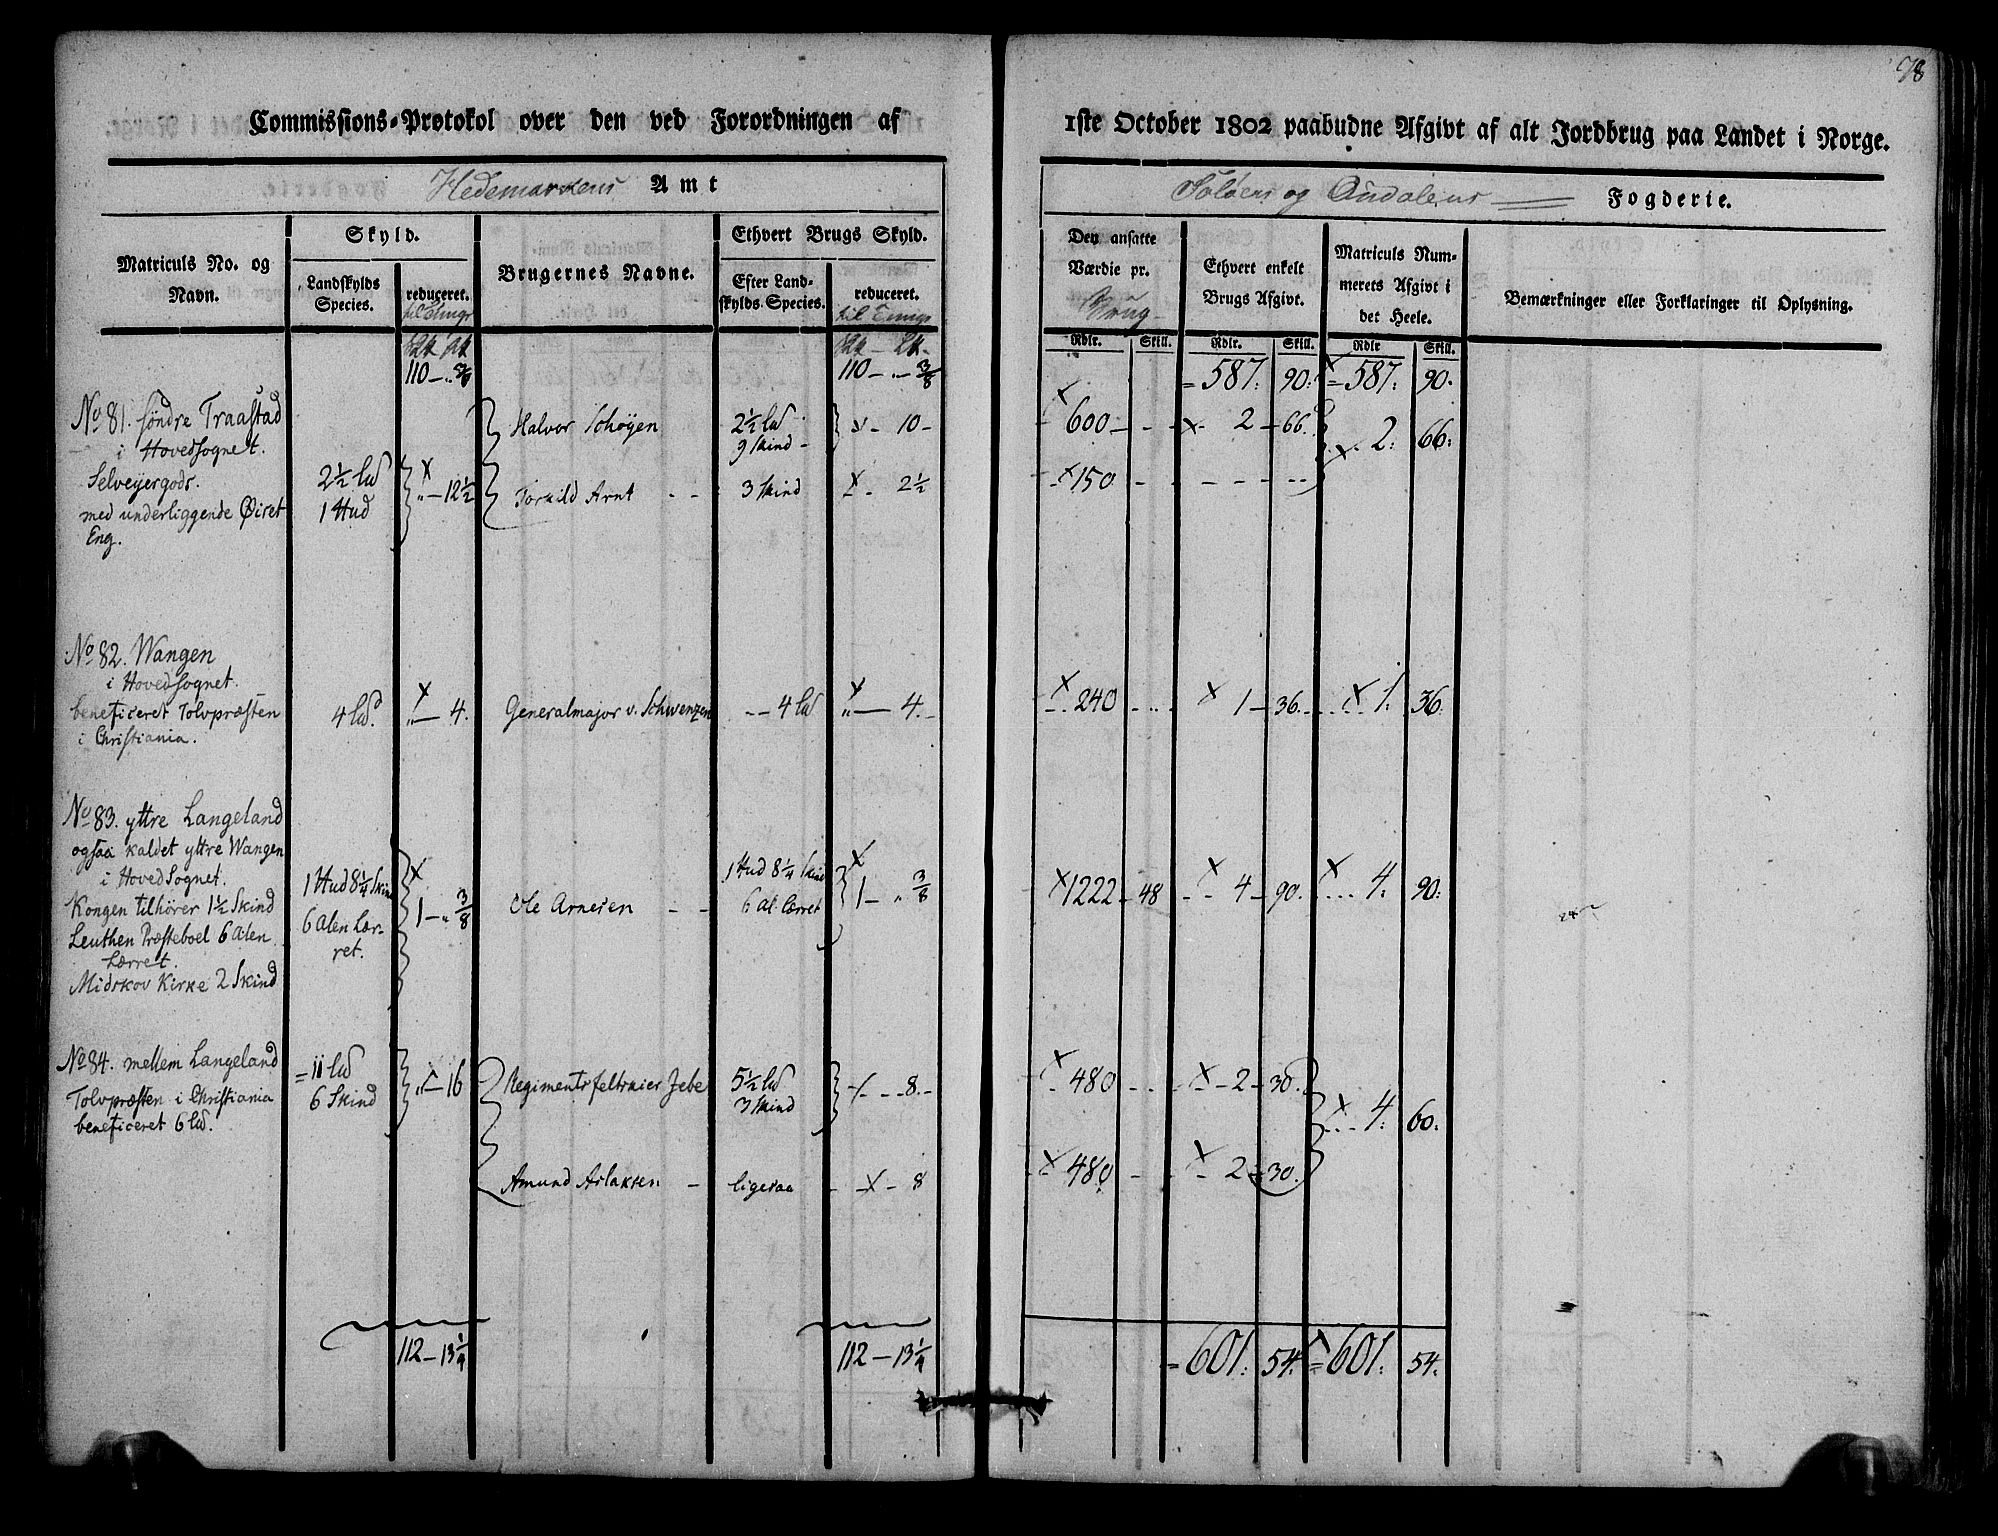 78
Commissions-Protokol over den ved Forordningen af 1ste October 1802 paabudne Afgivt af alt Jordbrug paa Landet i Norge.
Hedemarkens Amt
Soløers og Oudalens Fogderie.
Matriculs No. og Navn.
Skyld.
Landskylds Species.
reduceret.
Brugernes Navne.
Ethvert Brugs Skyld.
Efter Landskylds Species.
reduceret.
til Tunge
Den ansatte Værdie pr. Brug
Ethvert enkelt Brugs Afgivt.
Matriculs Nummerets Afgivt i det Heele.
Bemærkninger eller Forklaringer til Oplysning.
Rdlr. Skill. Rdlr. Skill. Rdlr Skill.
110 — „ 3/8 110 — „ — 3/8 = 587: 90: X = 587: 90.
No 81. søndre Traastad
i Hovedsognet.
Selveyergods.
med underliggende Øiret
Eng.
2½ Ld
1 Hud
X „ — 12½
Halvor Schøyen 2½ Ld 9 Skind - 10 - X 600 X 2 — 66. X 2: 66:
Torkild Arnt 3 Skind X 2½ X 150
No 82. Wangen
i Hovedsognet.
beneficeret Tolvpræsten
i Christiania.
4 Ld. X „ — 4. Generalmajor v. Schwenzen 4 Ld X „ — 4. X 240 X 1 — 36. X 1. 36.
No 83. yttre Langeland
ogsaa kaldet yttre Wangen
i HovedSognet.
Kongen tilhører 1½ Skind
Leuthen Præsteboel 6 Alen
Lærret.
Midskov Kirke 2 Skind
1 Hud 8¼ Skind
6 Alen Lær-
ret.
X 1 — „ 3/8
Ole Arnesen 1 Hud 8¼ Skind 6 Al: Lærret X 1 — „ 3/8 X 1222 — 48 X 4 — 90. X 4: 90:
No 84. mellem Langeland
Tolvpræsten i Christiania
beneficeret 6 Ld.
= 11 Ld
6 Skind
„ X — 16
Regimentsfeltskier Jebe 5½ Ld 3 Skind X 8. X 480 X 2 — 30. X 4: 60:
Amund Aslaksen ligesaa X 8 X 480 X 2 — 30.
112 — 13¼ 112 — 13¼ = 601: 54. X = 601: 54: